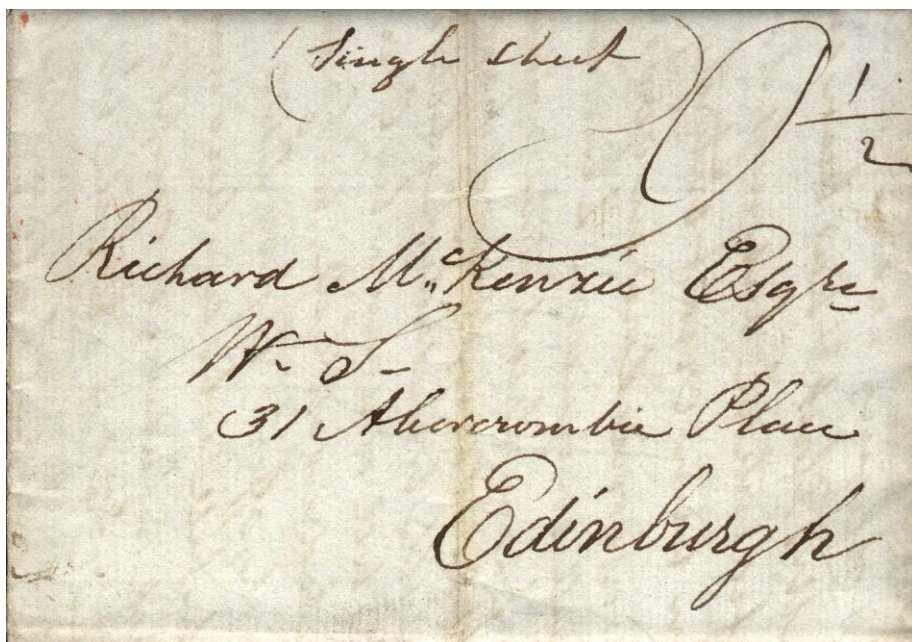 (Single sheet)
1/2
Richard McKenzie Esqre
W. S.
31 Abercrombie Place
Edinburgh